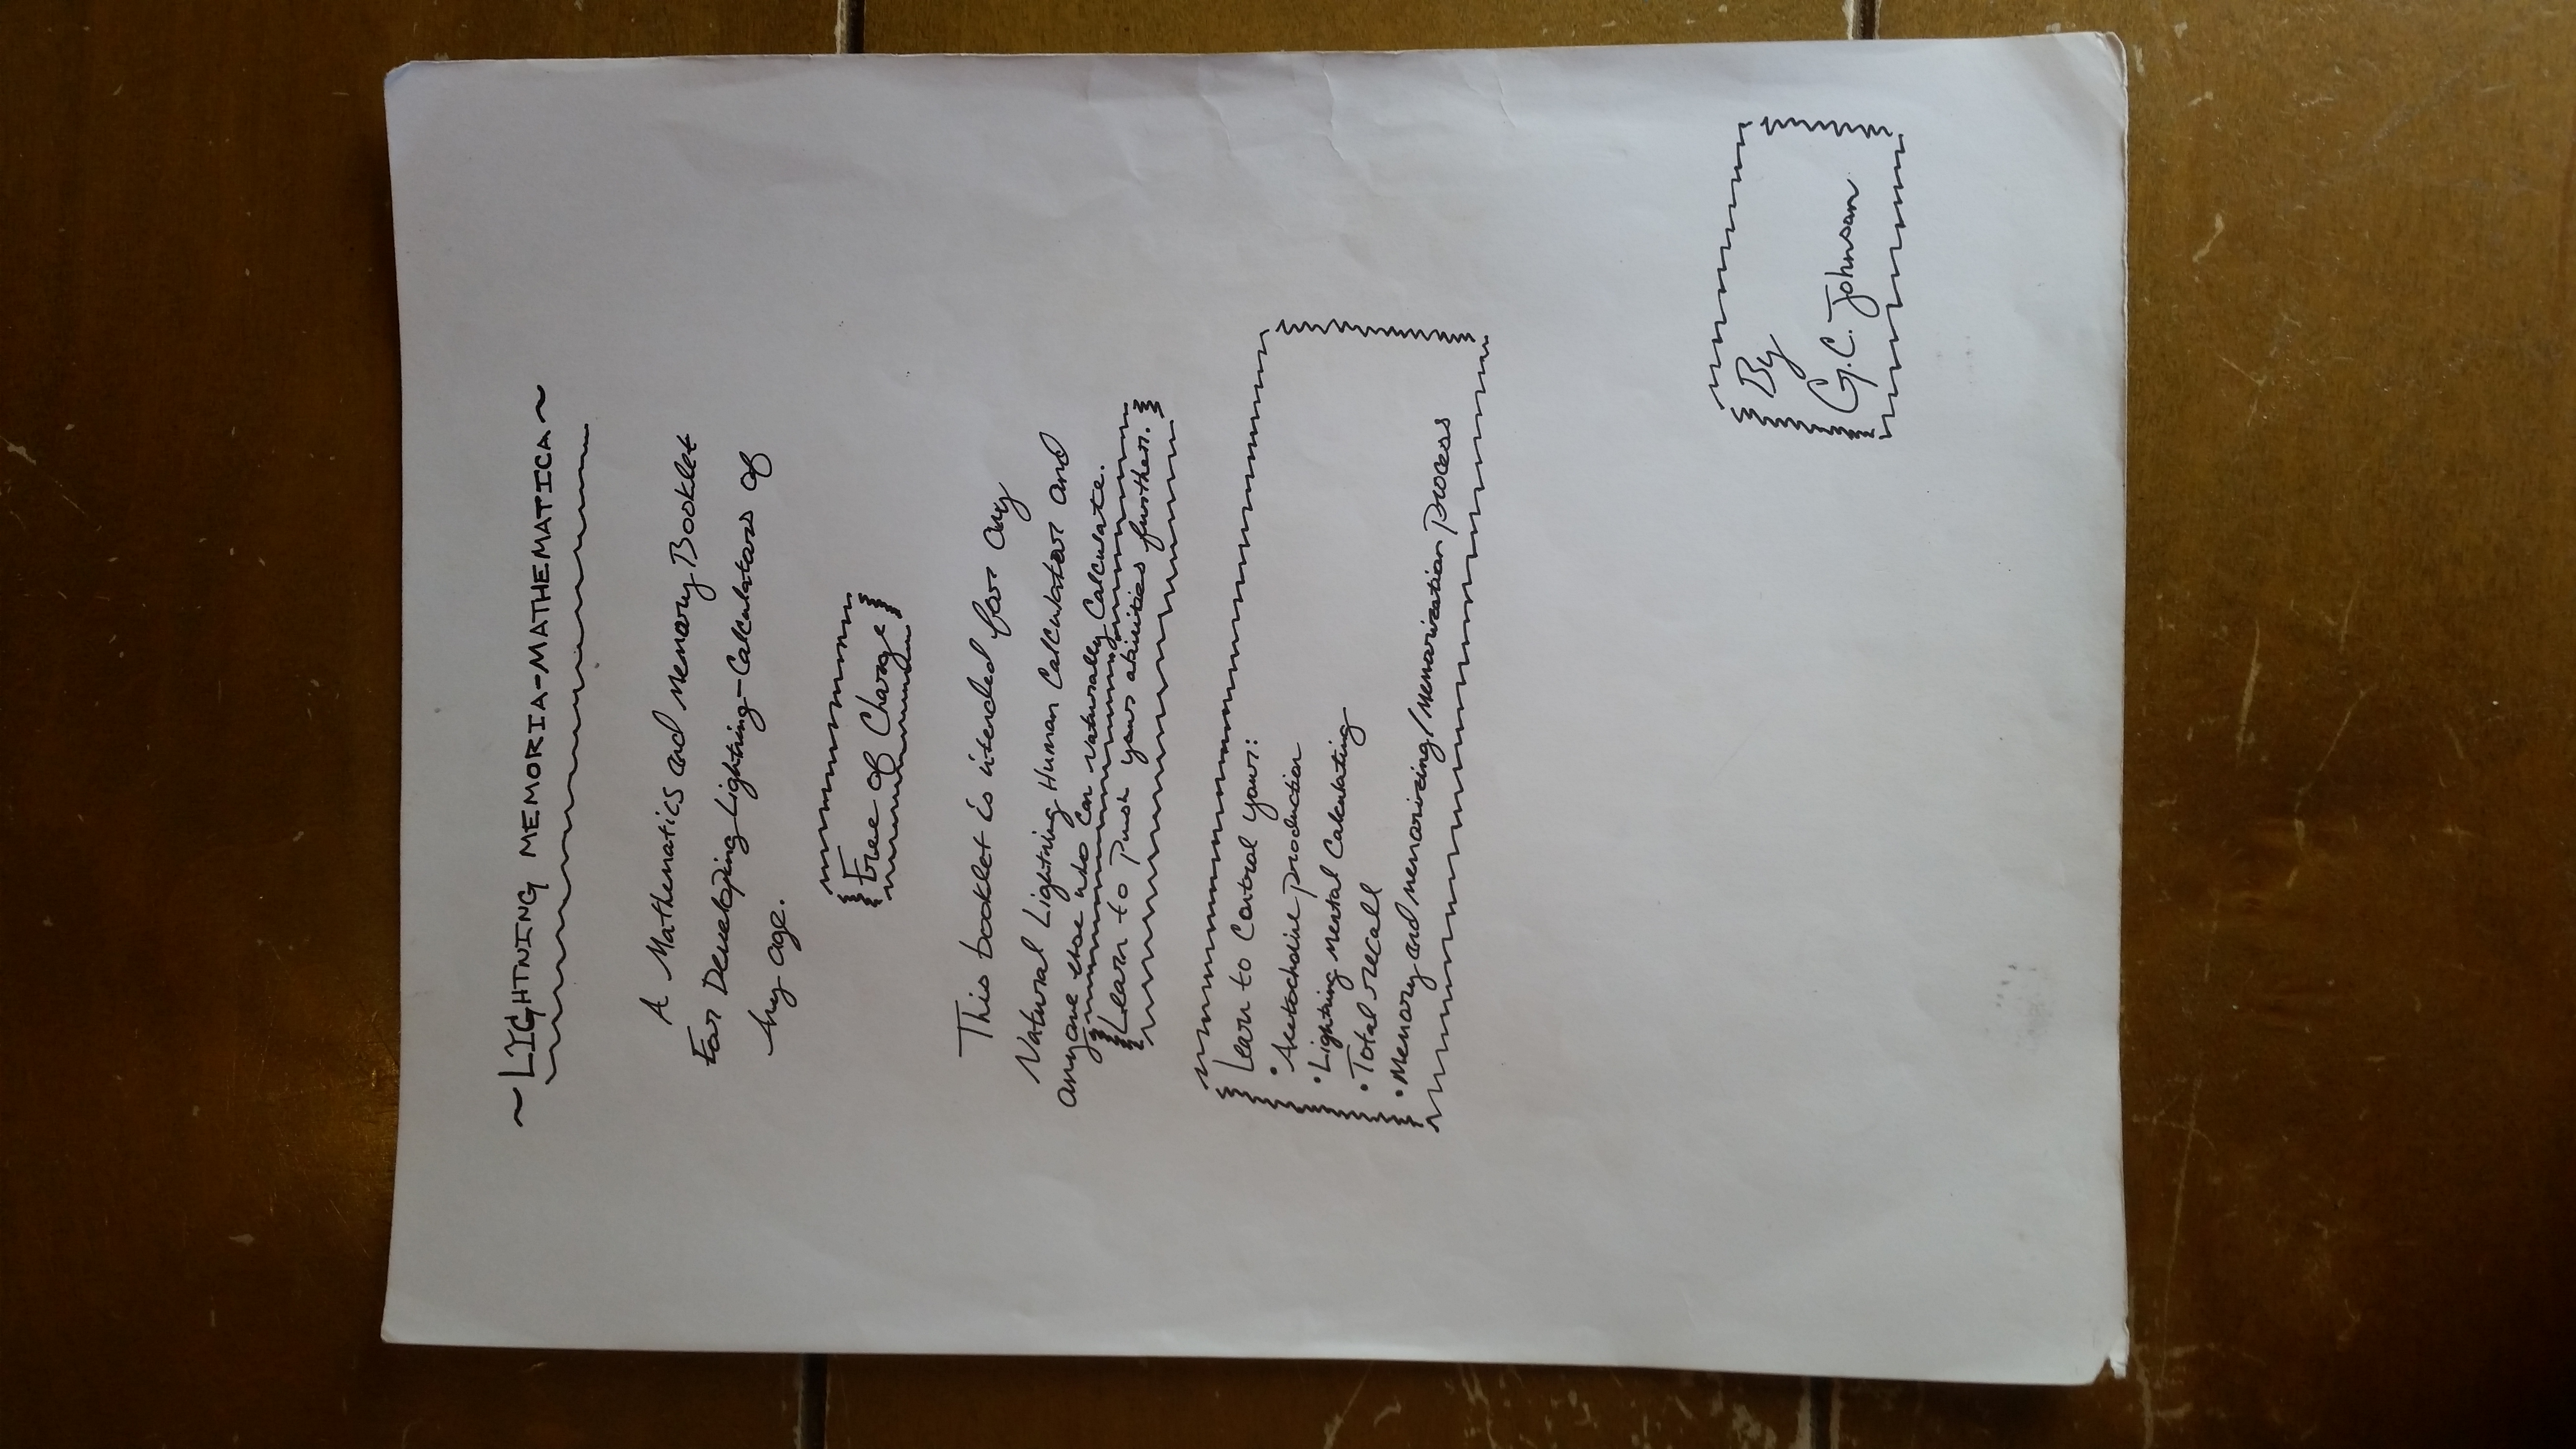 ~LIGHTNING MEMORIA-MATHEMATICA~
A Mathematics and Memory Booklet
For Developing Lightning-Calculators of
Any age.
Free of Charge
This booklet is intended for any
Natural Lightning Human Calculator and
anyone else who can Naturally Calculate.
Learn to Push your abilities further.
Learn to Control your:
• production
• Lightning Mental Calculating
• Total recall
• Memory and memorizing/Memorization Process
By
G.C. Johnson